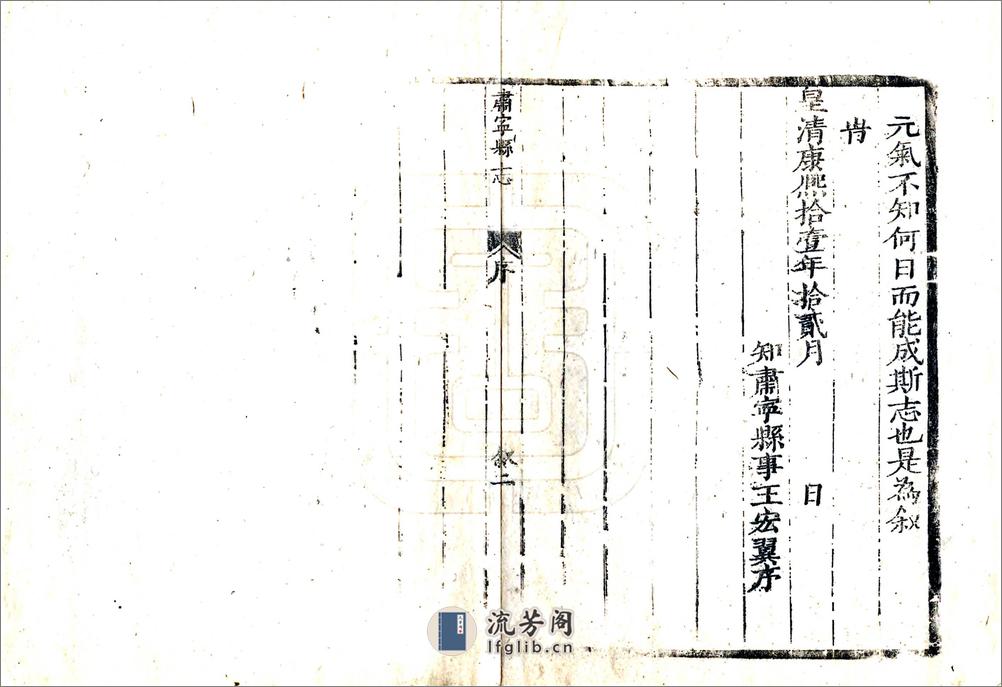 元氣不知何日而能成斯志也是為叙
旹
皇清康熙拾壹年拾貳月　　日
知肅寧縣事王宏翼序
肅寧縣志　序　叙二
流芳阁
lfglib.cn